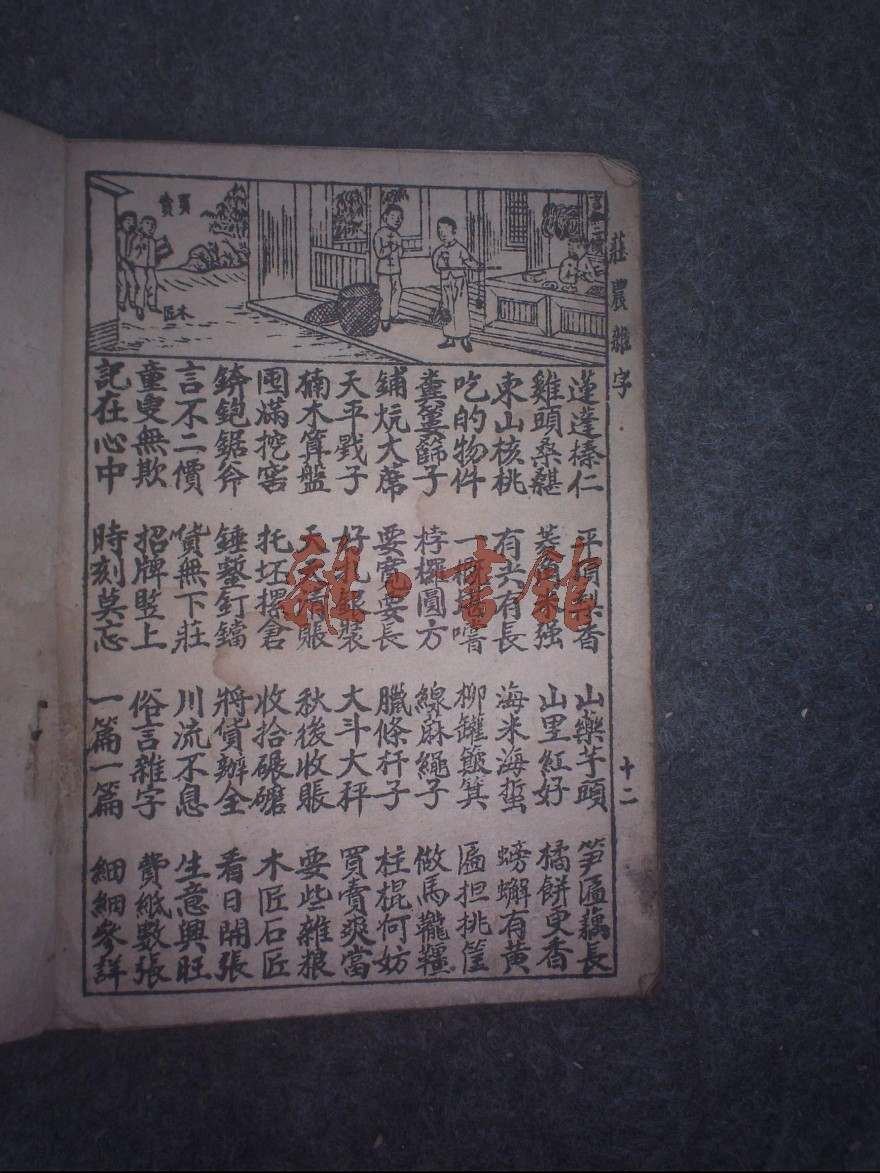 莊農雜字
十二
買賣
木匠
言不二價
蓮蓬榛仁 平頂梨香 山藥芋頭 笋匾藕長
雞頭桑椹 菱角 強 山里紅好 橘餅更香
東山核桃 有共有長 海米海蜇 螃蠏有黃
吃的物件 一 嚐 柳罐簸箕 匾担挑筐
糞簍篩子 桲欏圓方 線蔴繩子 做馬韁
鋪炕大席 要寬要長 臘條杆子 柱棍何妨
天平戥子 好 裝 大斗大秤 買賣爽當
楠木算盤 天天清賬 秋後收賬 要些雜粮
囤滿挖窖 托坯摞倉 收拾碾磨 木匠石匠
錛鉋鋸斧 錘鏨釘鐺 將貨辦全 看日開張
言不二價 貨無下莊 川流不息 生意興旺
童叟無欺 招牌竪上 俗言雜字 費紙數張
記在心中 時刻莫忘 一篇一篇 細細參詳
雜·書館